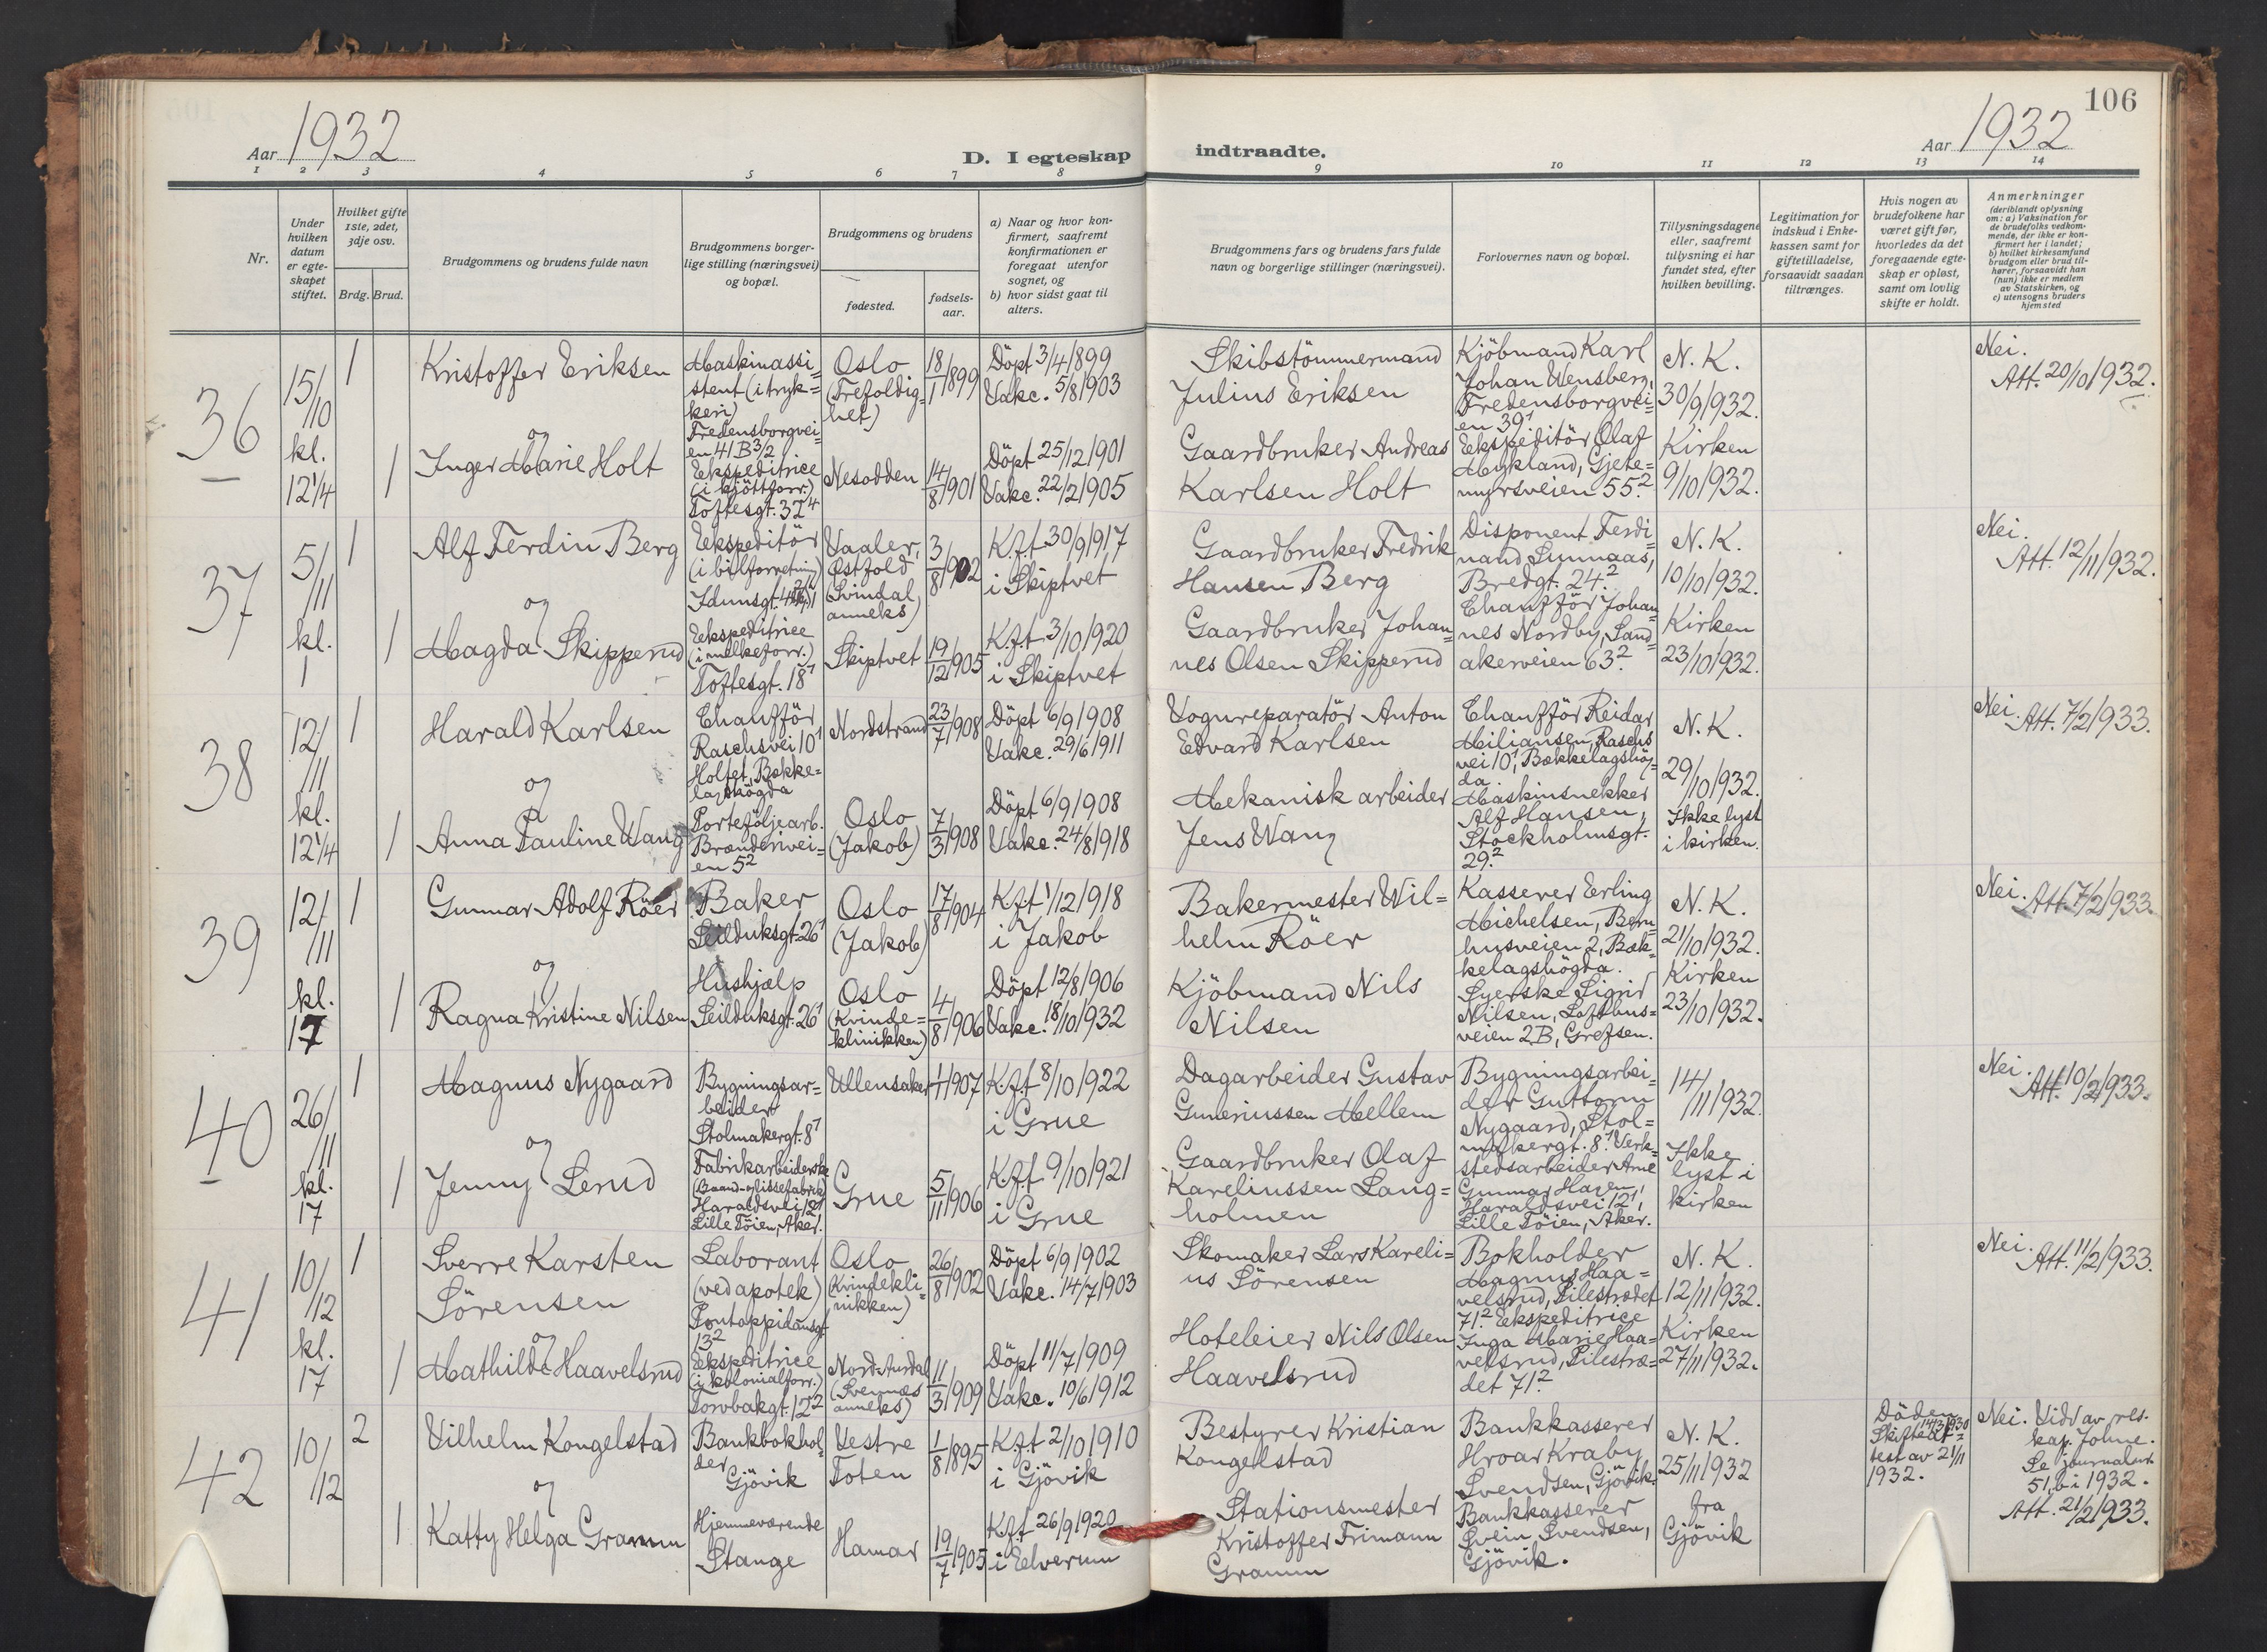 106
Aar 1932
D. I egteskap
indtraadte.
Aar 1932
1 2 3 4 5 6 7 8 9 10 11 12 13 14
Nr.
Under
hvilken
datum
er egte-
skapet
stiftet.
Hvilket gifte
1ste, 2det,
3dje osv.
Brdg. Brud.
Brudgommens og brudens fulde navn
Brudgommens borger-
lige stilling (næringsvei)
og bopæl.
Brudgommens og brudens
fødested.
fødsels-
aar.
a) Naar og hvor kon-
firmert, saafremt
konfirmationen er
foregaat utenfor
sognet, og
b) hvor sidst gaat til
alters.
Brudgommens fars og brudens fars fulde
navn og borgerlige stillinger (næringsvei).
Forlovernes navn og bopæl.
Tillysningsdagene
eller, saafremt
tillysning ei har
fundet sted, efter
hvilken bevilling.
Legitimation for
indskud i Enke-
kassen samt for
giftetilladelse,
forsaavidt saadan
tiltrænges.
Hvis nogen av
brudefolkene har
været gift før,
hvorledes da det
foregaaende egte-
skap er opløst,
samt om lovlig
skifte er holdt.
Anmerkninger
(deriblandt oplysning
om: a) Vaksination for
de brudefolks vedkom-
mende, der ikke er kon-
firmert her i landet;
b) hvilket kirkesamfund
brudgom eller brud til-
hører, forsaavidt han
(hun) ikke er medlem
av Statskirken, og
c) utensogns bruders
hjemsted
36
15/10
kl.
12 1/4
1
Kristoffer Eriksen
Maskinassi=
stent (i tryk=
keri)
Fredensborgvei=
en 41 B 3/2
Oslo
(Trefoldig-
het)
18/1 1899
Döpt 3/4 1899
Vakc. 5/8 1903
Skibstömmermand
Julius Eriksen
Kjöbmand Karl
Johan Wensberg,
Fredensborgvei=
en 39 1
N. K.
30/9 1932.
Nei.
Att. 20/10 1932.
og
1
Inger Marie Holt
Ekspeditrice
(i kjöttforr.)
Toftesgt. 32 4
Nesodden
14/8 1901
Döpt 25/12 1901
Vakc. 22/2 1905
Gaardbruker Andreas
Karlsen Holt
Ekspeditör Olaf
Mykland, Gjete=
myrsveien 55. 2
Kirken
9/10 1932.
37
5/11
kl.
1
1
Alf Ferdin Berg
Ekspeditör
(i bilforretning)
Idunsgt.
Vaaler,
Østfold
(Svindal
anneks)
3/8 1902
K.f.t 30/9 1917
i Skiptvet
Gaardbruker Fredrik
Hansen Berg
Disponent Ferdi=
nand Sunnaas,
Bredgt. 24. 2
N. K.
10/10 1932.
Nei.
Att. 12/11 1932.
og
1
Magda Skipperud
Ekspeditrice
(i melkeforr.)
Toftesgt. 18 1
Skiptvet
19/12 1905
K.f.t 3/10 1920
i Skiptvet
Gaardbruker Johan=
nes Olsen Skipperud
Chaufför Johan=
nes Nordby, Sand=
akerveien 63. 2
Kirken
23/10 1932.
38
12/11
kl.
12 1/4
1
Harald Karlsen
Chaufför
Raschsvei 10 1
Holtet, Bække=
lagshögda
Nordstrand
23/7 1908
Döpt 6/9 1908
Vakc. 29/6 1911
Vognreparatör Anton
Edvard Karlsen
Chaufför Reidar
Miliansen, Raschs
vei 10 1, Bækkelagshög=
da.
N. K.
29/10 1932.
Nei. Att. 7/2 1933.
og
1
Anna Pauline Wang
Porteföljearb.
Brænderivei=
en 5 2
Oslo
(Jakob)
7/3 1908
Döpt 6/9 1908
Vakc. 24/8 1918
Mekanisk arbeider
Jens Wang
Maskinsnekker
Alf Hansen,
Stockholmsgt.
29. 2
Ikke lyst
i kirken.
39
12/11
kl.
17
1
Gunnar Adolf Röer
Baker
Seilduksgt. 26 1
Oslo
(Jakob)
17/8 1904
K.f.t 1/12 1918
i Jakob
Bakermester Wil=
helm Röer
Kasserer Erling
Michelsen, Bern=
husveien 2, Bæk=
kelagshögda.
N. K.
21/10 1932.
Nei. Att. 7/2 1933.
og
1
Ragna Kristine Nilsen
Hushjælp
Seilduksgt. 26 1
Oslo
(Kvinde=
klinikken)
4/8 1906
Döpt 12/8 1906
Vakc. 18/10 1932
Kjöbmand Nils
Nilsen
Syerske Sigrid
Nilsen, Lofthus=
veien 2B, Grefsen.
Kirken
23/10 1932.
40
26/11
kl.
17
1
Magnus Nygaard
Bygningsar=
beider
Stolmakergt. 8 1
Ullensaker
1/1 1907
K.f.t 8/10 1922
i Grue
Dagarbeider Gustav
Guneriussen Mellem
Bygningsarbei=
der Guttorm
Nygaard, Stol=
makergt. 8. 1
14/11 1932.
Nei.
Att. 10/2 1933.
og
1
Jenny Lerud
Fabrikarbeiderske
(Baand- og lissefabrik)
Haraldsvei 12 1
Lille Töien, Aker.
Grue
5/11 1906
K.f.t 9/10 1921
i Grue
Gaardbruker Olaf
Kareliussen Lang=
holmen
Verk=
stedsarbeider Arne
Gunnar Hagen,
Haraldsvei 12 1,
Lille Töien, Aker.
Ikke
lyst i
kirken
41
10/12
kl.
17
1
Sverre Karsten
Sörensen
Laborant
(ved apotek)
Pontoppidansgt.
13 2
Oslo
(Kvindekli=
nikken)
26/8 1902
Döpt 6/9 1902
Vakc. 14/7 1903
Skomaker Lars Kareli=
us Sörensen
Bokholder
Magnus Haa=
velsrud, Pilestrædet
71. 2
N. K.
12/11 1932.
Nei.
Att. 11/2 1933.
og
1
Mathilde Haavelsrud
Ekspeditrice
(i kolonialforr.)
Torvbakgt. 12 2
Nord-Aurdal
(Svennes
anneks)
11/3 1909
Döpt 11/7 1909
Vakc. 10/6 1912
Hoteleier Nils Olsen
Haavelsrud
Ekspeditrice
Inga Marie Haa=
velsrud, Pilestræ=
det 71. 2
Kirken
27/11 1932.
42
10/12
2
Vilhelm Kongelstad
Bankbokhol=
der
Gjövik
Vestre
Toten
1/8 1895
K.f.t 2/10 1910
i Gjövik
Bestyrer Kristian
Kongelstad
Bankkasserer
Hroar Kraby
Svendsen, Gjövik.
N. K.
25/11 1932
Döden
14/3 1930
Skifteat=
test av 21/11
1932.
Nei. Vidd av res.
kap. Johne.
Se journalnr.
51, b i 1932.
Att. 21/2 1933.
og
1
Katty Helga Gramm
Hjemmeværende
Stange
Hamar
19/7 1905
K.f.t 26/9 1920
i Elverum
Stationsmester
Kristoffer Frimann
Gramm
Bankkasserer
Svein Svendsen,
Gjövik.
fra
Gjövik